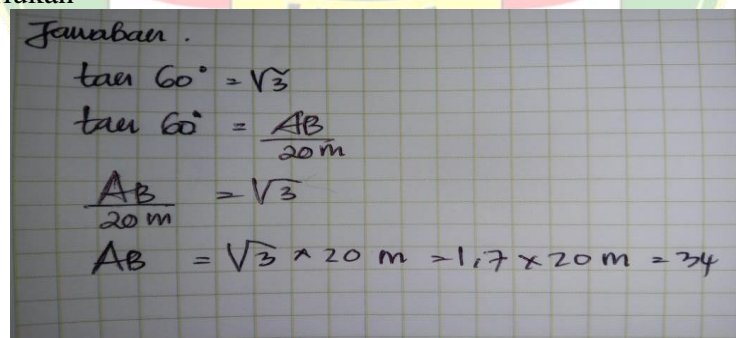 Jawaban.
tan 60° = √3
tan 60° = AB
20 m
AB = √3
20 m
AB = √3 × 20 m = 1,7 × 20 m = 34